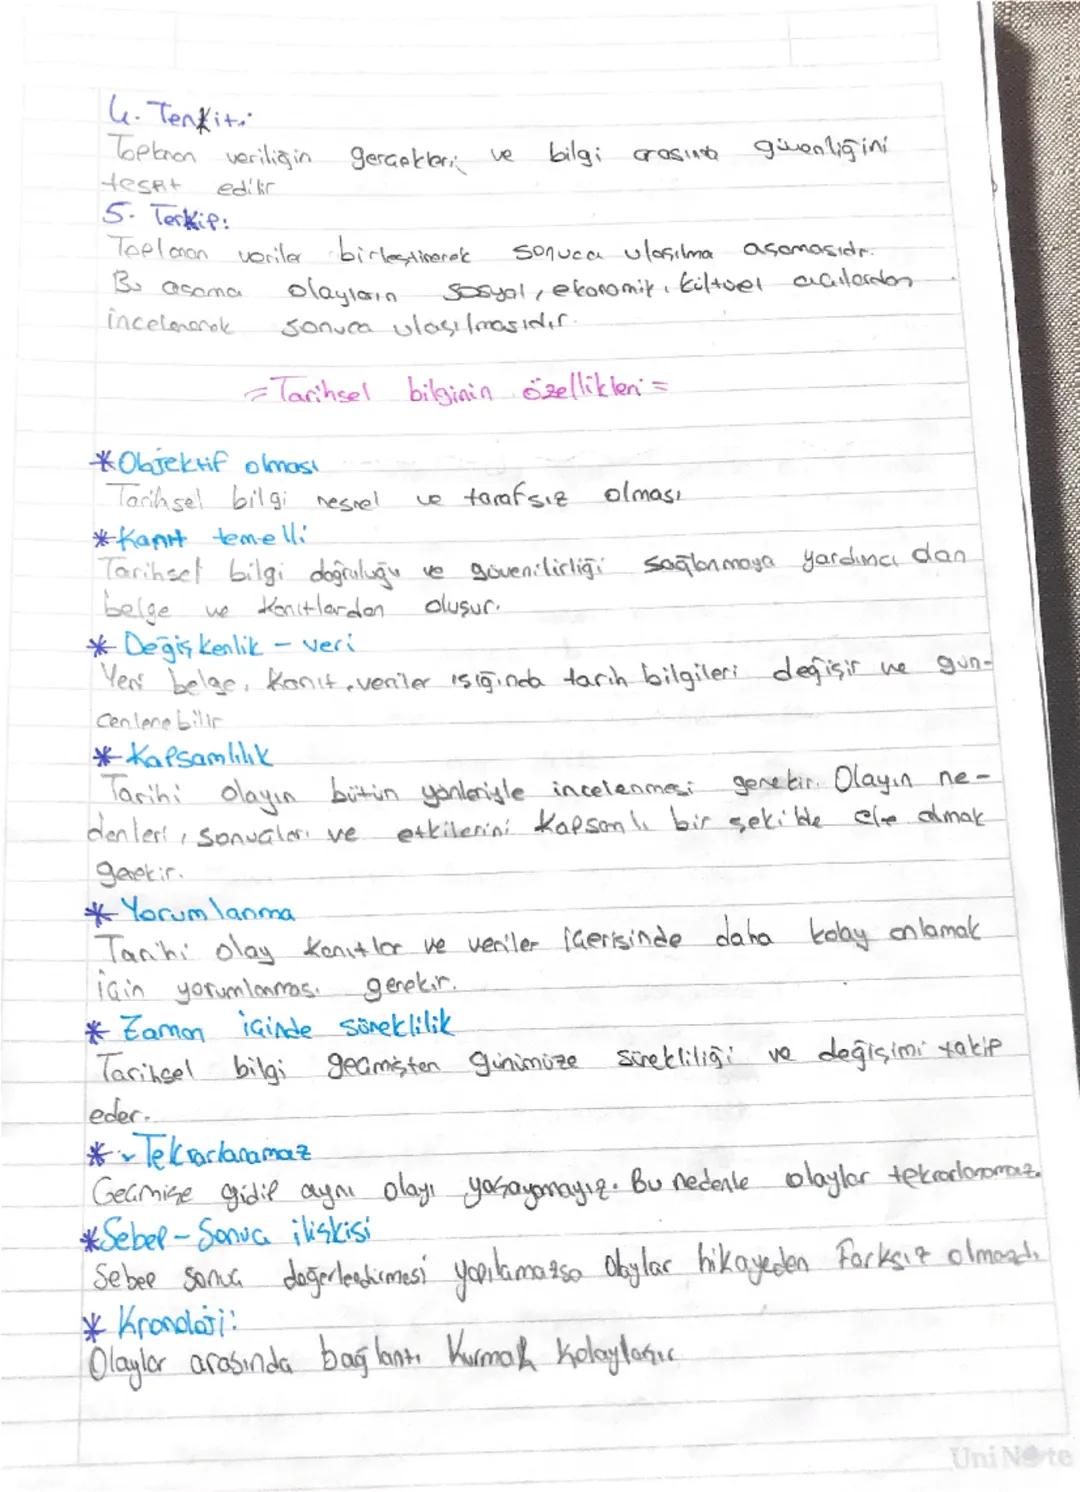 4. Tenkit:
Toplanan veriliğin gerçekleri ve bilgi arasında güvenliğini
tespit edilir
5. Terkip:
Toplanan veriler birleştirerek sonuca ulaşılma aşamasıdır.
Bu aşama olayların sosyal, ekonomik, kültürel açılardan
incelenerek sonuca ulaşılmasıdır.
= Tarihsel bilginin özellikleri =
* Objektif olması
Tarihsel bilgi nesnel ve tarafsız olması
* Kanıt temelli
Tarihsel bilgi doğruluğu ve güvenilirliği sağlanmaya yardımcı olan
belge ve kanıtlardan oluşur.
* Değişkenlik - veri
Yeni belge, kanıt, veriler ışığında tarih bilgileri değişir ve gün-
cenlenebilir
* Kapsamlılık
Tarihi olayın bütün yönleriyle incelenmesi gerekir. Olayın ne-
denleri, sonuçları ve etkilerini kapsamlı bir şekilde ele almak
gerekir.
* Yorumlanma
Tarihi olay kanıtlar ve veriler içerisinde daha kolay anlamak
için yorumlanması gerekir.
* Zaman içinde süreklilik
Tarihsel bilgi geçmişten günümüze sürekliliği ve değişimi takip
eder.
* Tekrarlanamaz
Geçmişe gidip aynı olayı yaşayamayız. Bu nedenle olaylar tekrarlanamaz.
* Sebep - Sonuç ilişkisi
Sebep sonuç değerlendirmesi yapılamazsa olaylar hikayeden farksız olmazdı
* Kronoloji:
Olaylar arasında bağlantı kurmak kolaylaşır
UniNote